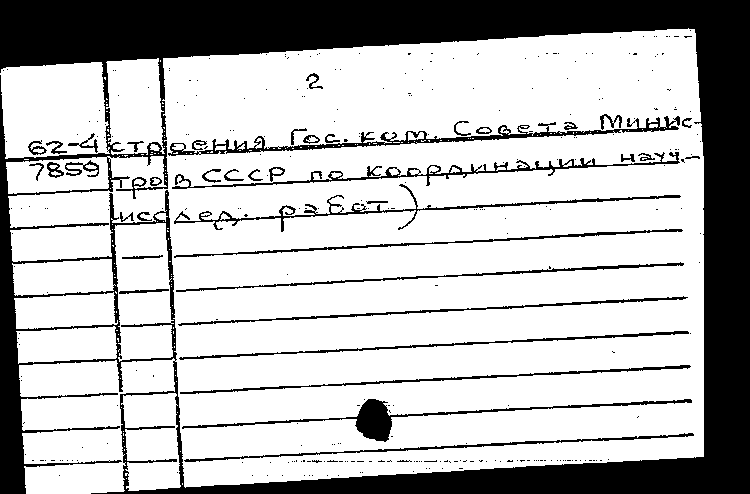 2
62-4 строения Гос. ком. Совета Минис-
7859 тров СССР по координации науч.-
исслед. работ).